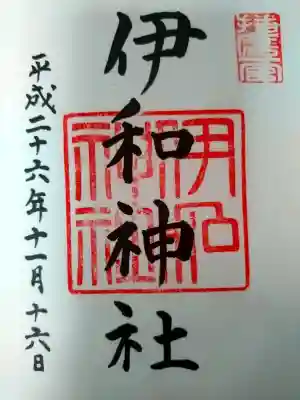 播磨国
伊和神社
伊和神社
平成二十六年十一月十六日